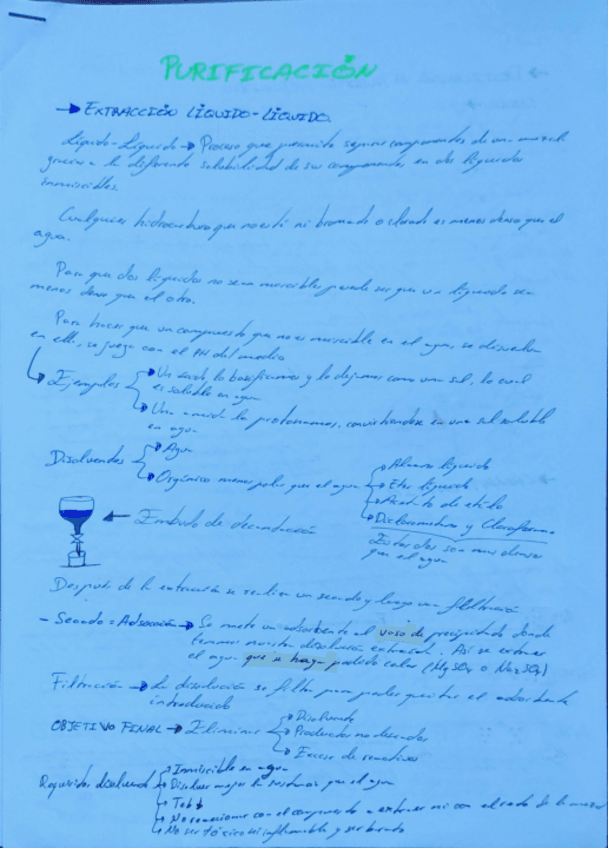 PURIFICACIÓN
→ EXTRACCIÓN LÍQUIDO-LÍQUIDO
Líquido-Líquido → Proceso que permite separar componentes de una mezcla
gracias a la diferente solubilidad de sus componentes en dos líquidos
inmiscibles.
Cualquier hidrocarburo que no esté ni bromado o clorado es menos denso que el
agua.
Para que dos líquidos no sean miscibles puede ser que un líquido sea
menos denso que el otro.
Para hacer que un compuesto que no es miscible en el agua, se disuelva
en ella, se juega con el PH del medio
Ejemplos
Un ácido lo basificamos y lo dejamos como una sal, lo cual
es soluble en agua
Una amida la protonamos, convirtiéndose en una sal soluble
en agua
Disolventes
Agua
Orgánico menos polar que el agua
Alcano líquido
Éter líquido
Acetato de etilo
Diclorometano y Cloroformo
Estos dos son más densos
que el agua
← Embudo de decantación
Después de la extracción se realiza un secado y luego una filtración
- Secado = Adsorción → Se mete un adsorbente al vaso de precipitado donde
tenemos nuestra disolución extraída. Así se extrae
el agua que se haya podido colar (MgSO4 o Na2SO4)
Filtración → La disolución se filtra para poder quitar el adsorbente
introducido
OBJETIVO FINAL → Eliminar
Disolvente
Productos no deseados
Exceso de reactivos
Requisitos disolvente
Inmiscible en agua
Disolver mejor la sustancia que el agua
Teb ↓
No reaccionar con el compuesto a extraer ni con el resto de la mezcla
No ser tóxico ni inflamable y ser barato